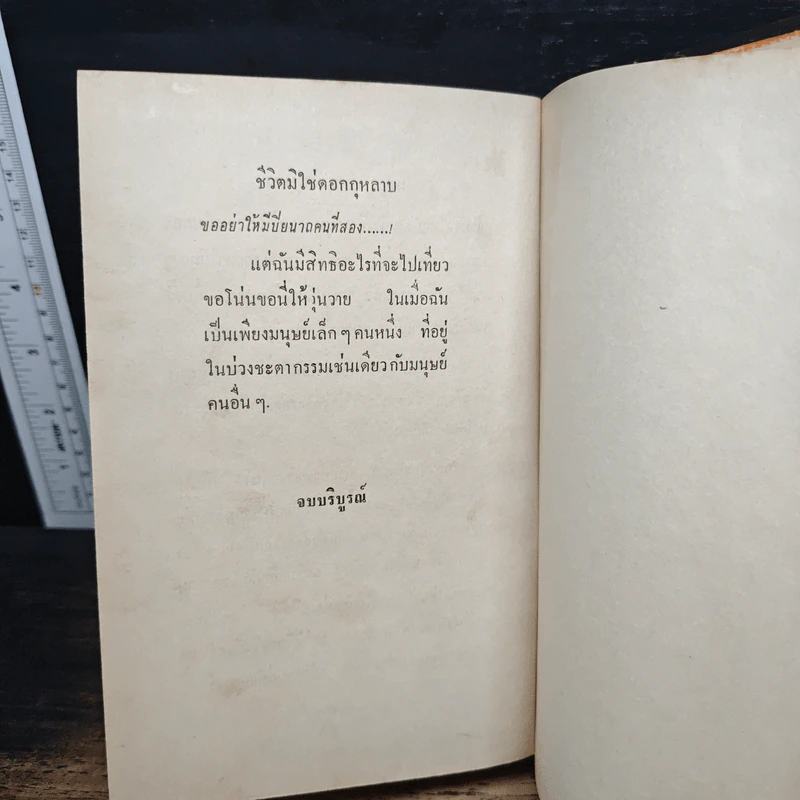 ชีวิตมิใช่ดอกกุหลาบ
ขออย่าให้มีปิยนาถคนที่สอง......!
แต่ฉันมีสิทธิอะไรที่จะไปเที่ยว
ขอโน่นขอนี่ให้วุ่นวาย ในเมื่อฉัน
เป็นเพียงมนุษย์เล็ก ๆ คนหนึ่ง ที่อยู่
ในบ่วงชะตากรรมเช่นเดียวกับมนุษย์
คนอื่น ๆ.
จบบริบูรณ์